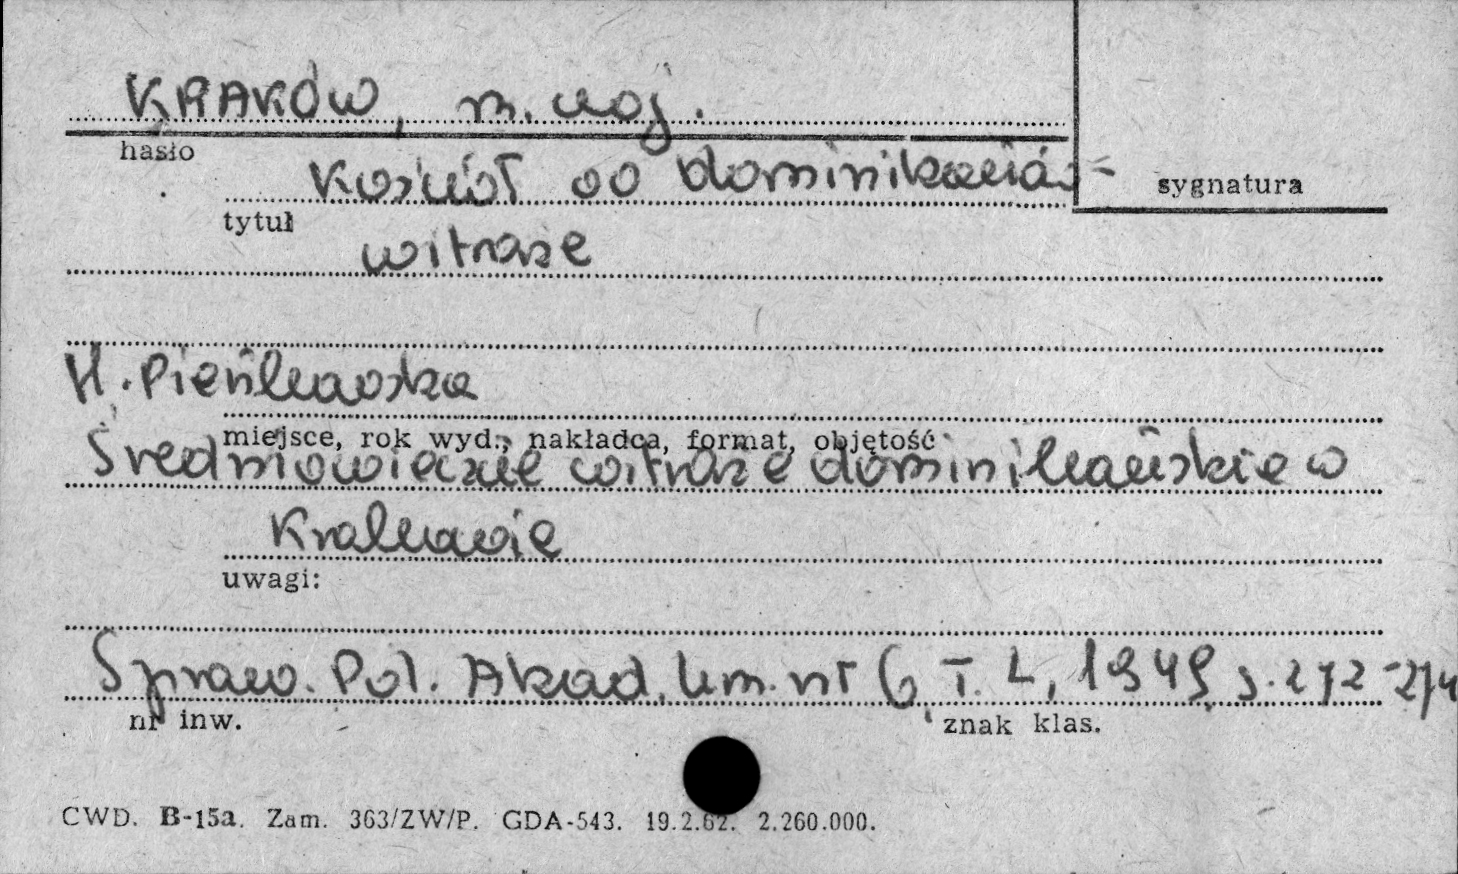 KRAKÓW, m. woj.
hasło
Kościół oo dominikanów -
sygnatura
tytuł
witraże
H. Pieńkowska
miejsce, rok wyd., nakładca, format, objętość
Średniowieczne witraże dominikańskie w
Krakowie
uwagi:
Spraw. Pol. Akad. Um. nr 6 T. L, 1949 s. 272-274
nr inw.
znak klas.
CWD. B-15a. Zam. 363/ZW/P. GDA-543. 19.2.62. 2.260.000.